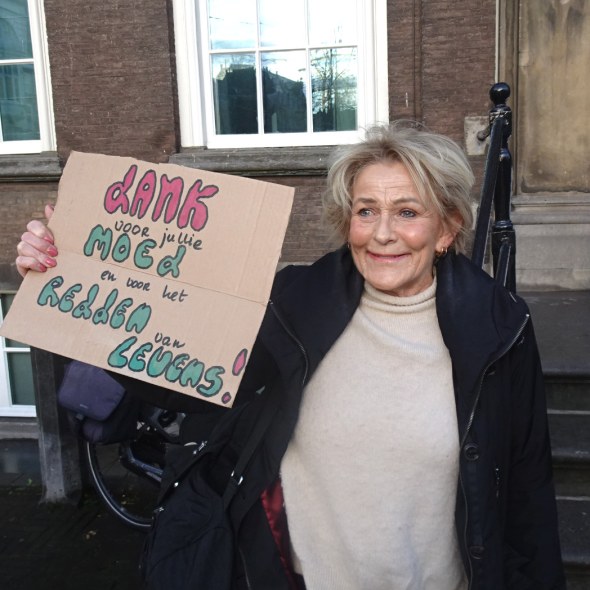 DANK
voor jullie
MOED
en voor het
REDDEN
van
LEVENS!